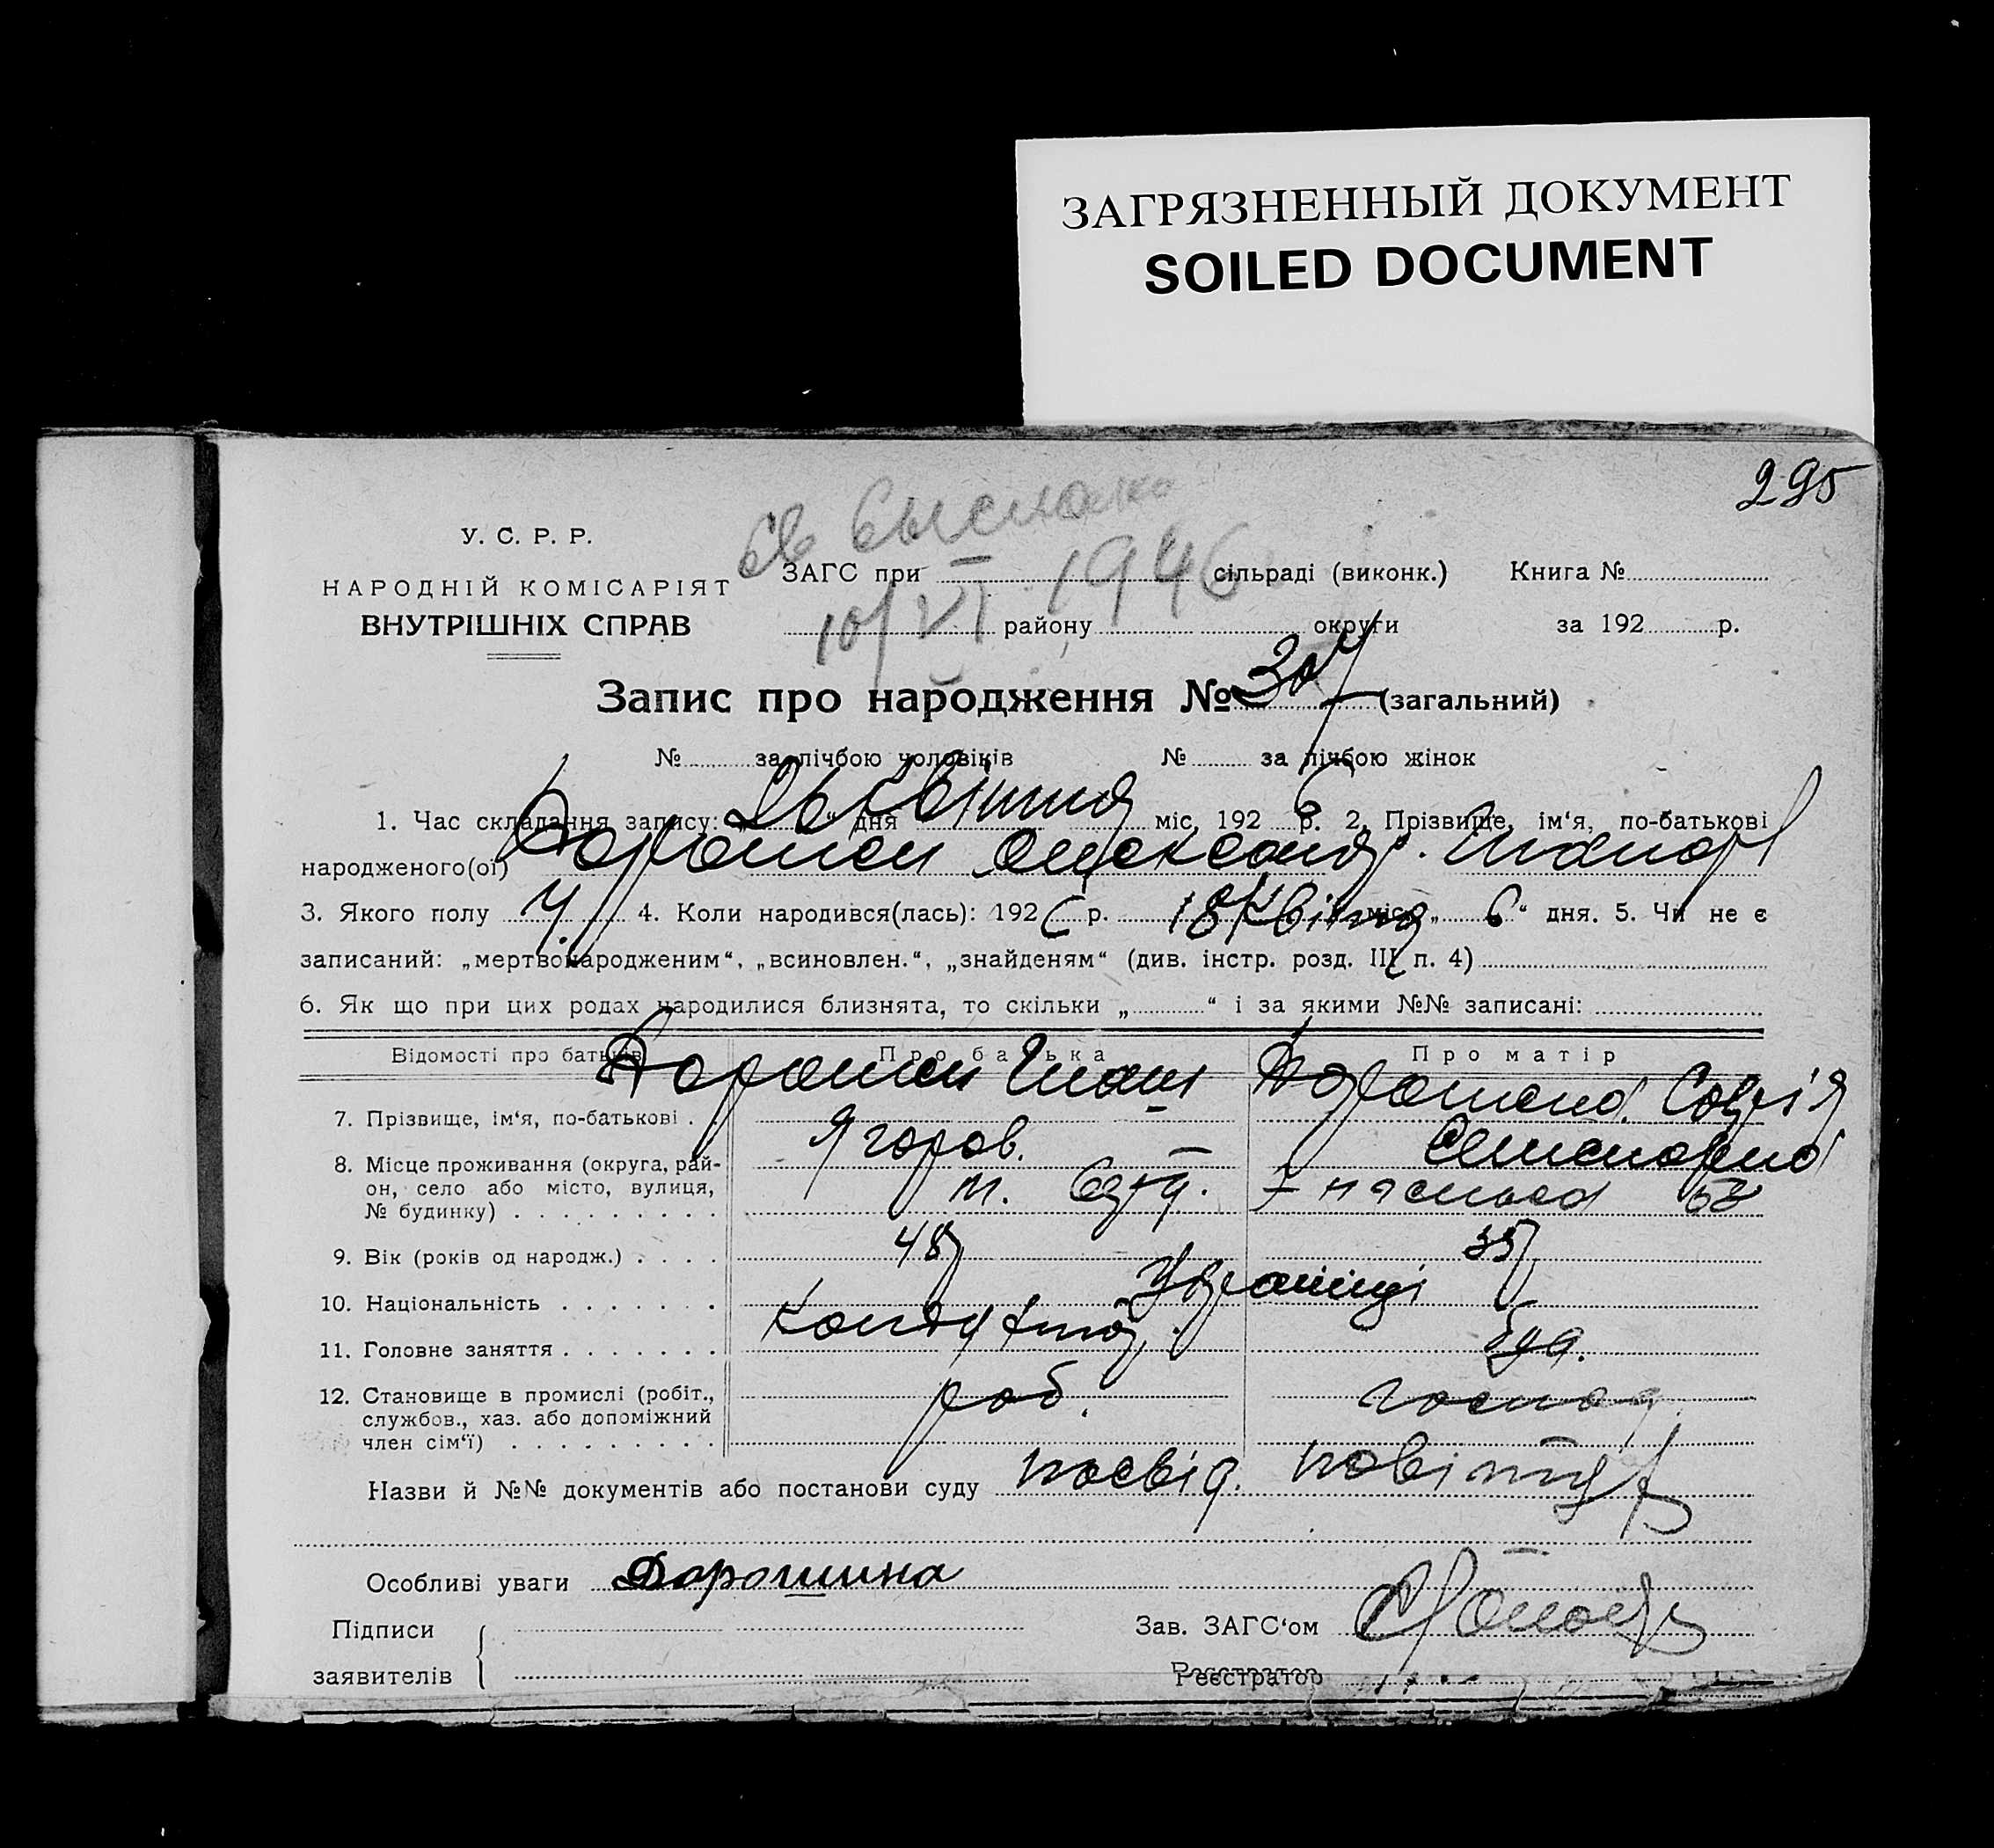 ЗАГРЯЗНЕННЫЙ ДОКУМЕНТ
SOILED DOCUMENT
295
У. С. Р. Р.
НАРОДНІЙ КОМІСАРІЯТ
ВНУТРІШНІХ СПРАВ
св выслано
10/VI 1946
ЗАГС при сільраді (виконк.) Книга №
району округи за 192 р.
Запис про народження № (загальний)
№ за лічбою чоловіків № за лічбою жінок
1. Час складання запису: „26“ дня Квітня міс. 192 6 р. 2. Прізвище, ім‘я, по-батькові
народженого(ої) Дорошен Олександр
3. Якого полу Ч. 4. Коли народився(лась): 192 6 р. 18 Квітня міс. „ “ дня. 5. Чи не є
записаний: „мертвонародженим“, „всиновлен.“, „знайденям“ (див. інстр. розд. III п. 4)
6. Як що при цих родах народилися близнята, то скільки „ “ і за якими №№ записані:
Відомості про батьків Про батька Про матір
7. Прізвище, ім‘я, по-батькові . . Дорошен Ягоров. Софія
8. Місце проживання (округа, рай-
он, село або місто, вулиця,
№ будинку) . . . . . . . . . м.
9. Вік (років од народж.) . . . . 48 35
10. Національність . . . . . . . Українці
11. Головне заняття . . . . . . .
12. Становище в промислі (робіт.,
службов., хаз. або допоміжний
член сім‘ї) . . . . . . . . . роб. господ.
Назви й №№ документів або постанови суду посвід.
Особливі уваги Дорошина
Підписи
заявителів
Зав. ЗАГС‘ом
Реєстратор